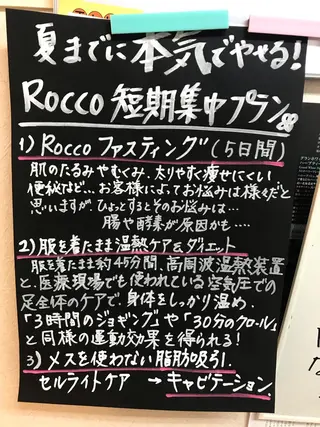 夏までに本気でやせる!
Rocco 短期集中プラン
1) Rocco ファスティング(5日間)
肌のたるみやむくみ、太りやすく痩せにくい
便秘など...お客様によってお悩みは様々だと
思いますがひょっとするとそのお悩みは…
腸や酵素が原因かも....
2)服を着たまま温熱ケア&ダイエット
服を着たまま約45分間、高周波温熱装置
と、医療現場でも使われている空気圧での
足全体のケアで、身体をしっかり温め、
「3時間のジョギング」や「30分のクロール」
と同様の運動効果を得られる!
3)メスを使わない脂肪吸引。
セルライトケア → キャビテーション。